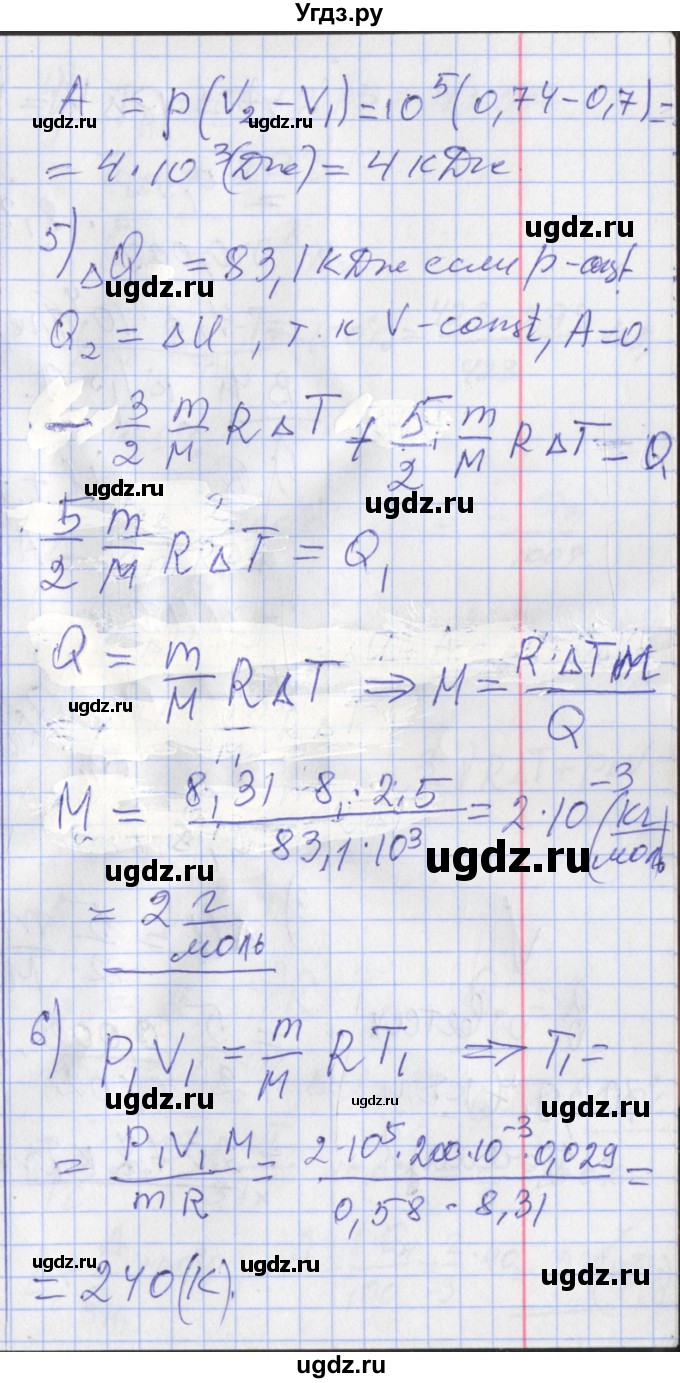 Угдз.ру
A = p(V₂ – V₁) = 10⁵(0,74 – 0,7) =
ugdz.ru ugdz.ru ugdz.ru
= 4·10³(Дж) = 4 кДж.
5) ΔQ = 83,1 кДж если p-const
ugdz.ru ugdz.ru
Q₂ = ΔU, т.к V-const, A=0.
– 3/2 m/M RΔT + 5/2 · m/M RΔT = Q₁
ugdz.ru ugdz.ru
5/2 m/M RΔT = Q₁
ugdz.ru
Q = m/M RΔT ⇒ M = R·ΔT m / Q
ugdz.ru ugdz.ru
M = 8,31 · 8, · 2,5 / 83,1·10³ = 2·10⁻³ (кг/моль)
ugdz.ru ugdz.ru
= 2 г/моль
6) P₁V₁ = m/M RT₁ ⇒ T₁ =
ugdz.ru ugdz.ru ugdz.ru
= P₁V₁M / mR = 2·10⁵·200·10⁻³·0,029 / 0,58 · 8,31 =
= 240(К).
ugdz.ru ugdz.ru ugdz.ru
ugdz.ru